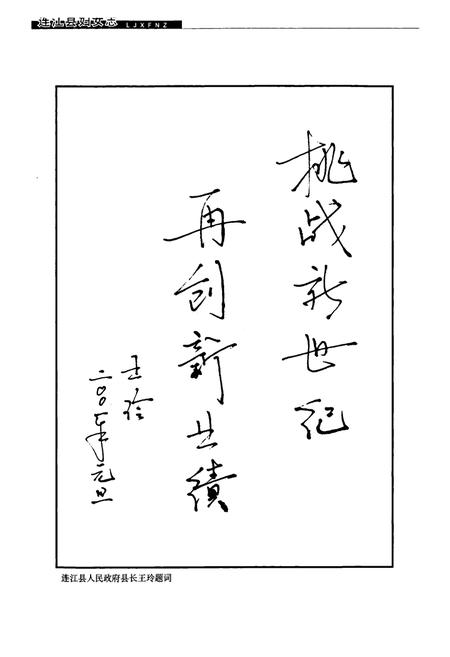 连江县妇女志
LJXFNZ
挑战新世纪
再创新业绩
王玲
二00一年元旦
连江县人民政府县长王玲题词